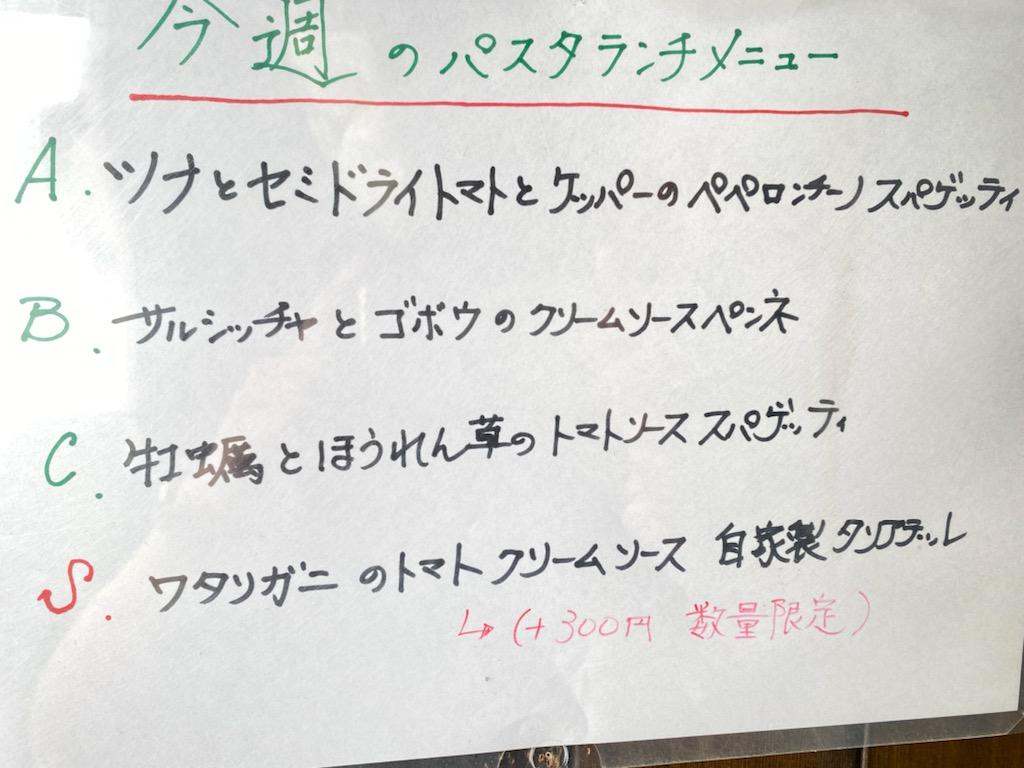 今週のパスタランチメニュー
A. ツナとセミドライトマトとケッパーのペペロンチーノ スパゲッティ
B. サルシッチャとゴボウのクリームソースペンネ
C. 牡蠣とほうれん草のトマトソース スパゲッティ
S. ワタリガニのトマトクリームソース 自家製タリアテッレ
↳(+300円 数量限定)